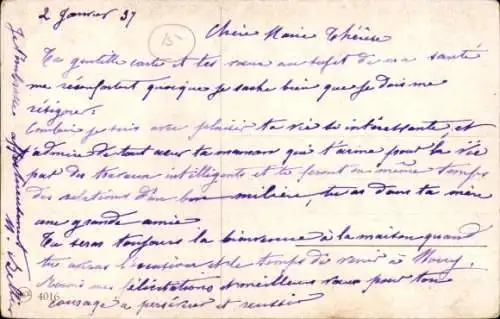 2 Janvier 37
Chère Marie Thérèse
Ta gentille carte et tes vœux au sujet de ma santé
me réconfortent quoique je sache bien que je dois me
résigner.
je suis avec plaisir ta vie si intéressante et
j'admire de tout cœur ta maman qui t'arme pour la vie
par des travaux intelligents et te feront en même temps
des relations d'un bon milieu, tu as dans ta mère
une grande amie
Tu seras toujours la bienvenue à la maison quand
tu auras l'occasion et le temps de venir à
mes félicitations et meilleurs vœux pour ton
courage à persévérer et réussir
Je t'embrasse affectueusement
4016